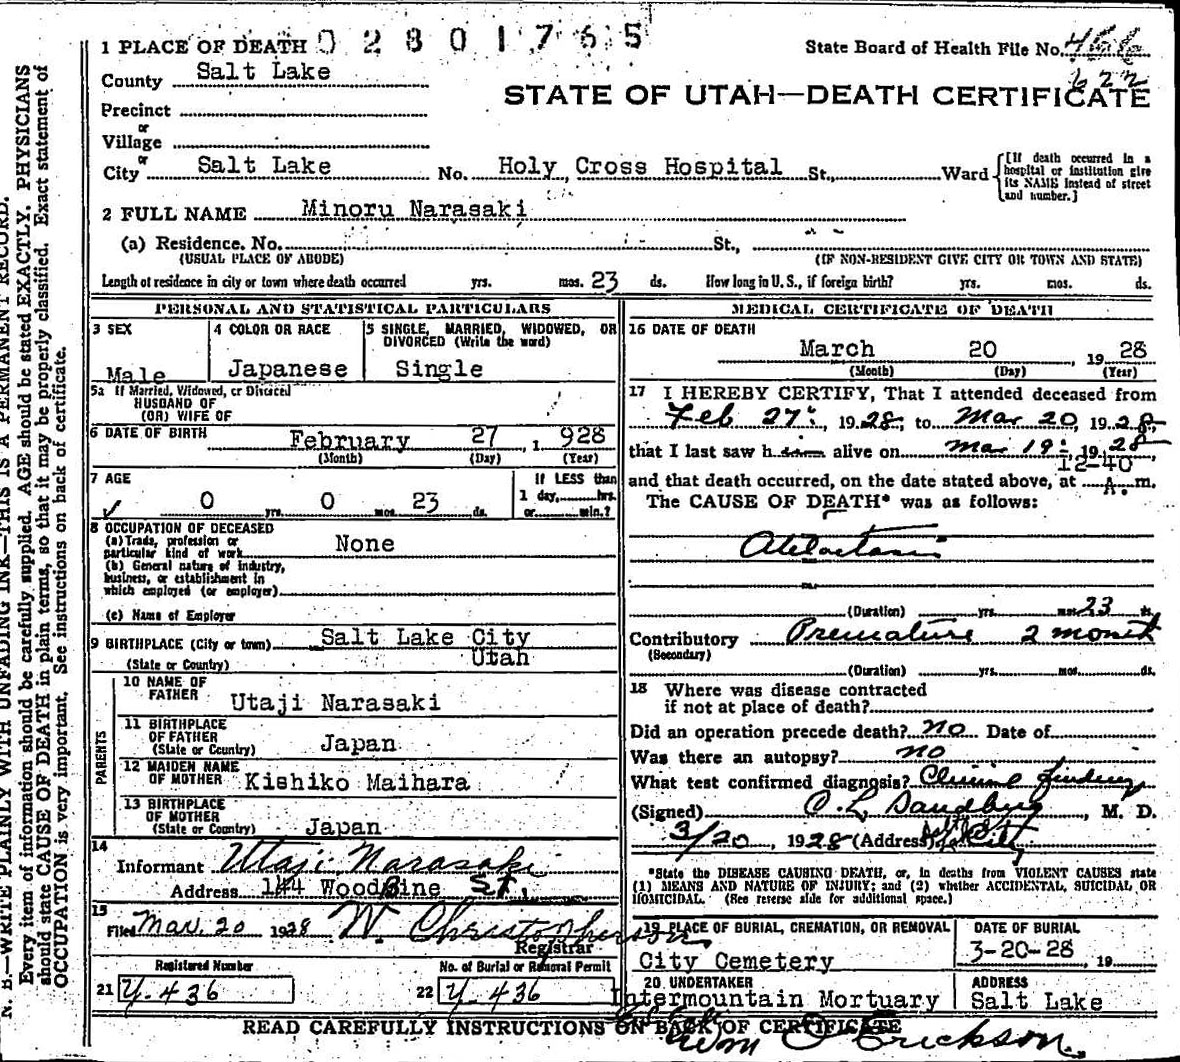 1 PLACE OF DEATH 02801765
State Board of Health File No.
622
County Salt Lake
STATE OF UTAH—DEATH CERTIFICATE
Precinct
or
Village
or
City Salt Lake No. Holy Cross Hospital St., Ward
[If death occurred in a
hospital or institution give
its NAME instead of street
and number.]
2 FULL NAME Minoru Narasaki
(a) Residence. No. St.,
(USUAL PLACE OF ABODE) (IF NON-RESIDENT GIVE CITY OR TOWN AND STATE)
Length of residence in city or town where death occurred yrs. mos. 23 ds. How long in U. S., if foreign birth? yrs. mos. ds.
PERSONAL AND STATISTICAL PARTICULARS
3 SEX
Male
4 COLOR OR RACE
Japanese
5 SINGLE, MARRIED, WIDOWED, OR
DIVORCED (Write the word)
Single
5a If Married, Widowed, or Divorced
HUSBAND OF
(OR) WIFE OF
6 DATE OF BIRTH February 27 1 928
(Month) (Day) (Year)
7 AGE
✓ 0 yrs. 0 mos. 23 ds.
If LESS than
1 day, hrs.
or min.?
8 OCCUPATION OF DECEASED
(a) Trade, profession or
particular kind of work None
(b) General nature of industry,
business, or establishment in
which employed (or employer)
(c) Name of Employer
9 BIRTHPLACE (City or town) Salt Lake City
(State or Country) Utah
PARENTS
10 NAME OF
FATHER Utaji Narasaki
11 BIRTHPLACE
OF FATHER
(State or Country) Japan
12 MAIDEN NAME
OF MOTHER Kishiko Maihara
13 BIRTHPLACE
OF MOTHER
(State or Country) Japan
14
Informant Utaji Narasaki
Address 144 Woodbine St.
15
Filed Mar. 20 1928 W. Christopherson
Registrar
Registered Number No. of Burial or Removal Permit
21 Y-436 22 Y-436
MEDICAL CERTIFICATE OF DEATH
16 DATE OF DEATH
March 20 , 19 28
(Month) (Day) (Year)
17 I HEREBY CERTIFY, That I attended deceased from
Feb 27, 1928, to Mar 20, 1928,
that I last saw h im alive on Mar 19, 1928,
12-40
and that death occurred, on the date stated above, at A. m.
The CAUSE OF DEATH* was as follows:
Atelectasis
(Duration) yrs. mos. 23 ds.
Contributory Premature 2 month
(Secondary)
(Duration) yrs. mos. ds.
18 Where was disease contracted
if not at place of death?
Did an operation precede death? no Date of
Was there an autopsy? no
What test confirmed diagnosis? Clinical findings
(Signed) O. L. Sandberg, M. D.
3/20, 1928 (Address) City
*State the DISEASE CAUSING DEATH, or, in deaths from VIOLENT CAUSES state
(1) MEANS AND NATURE OF INJURY; and (2) whether ACCIDENTAL, SUICIDAL OR
HOMICIDAL. (See reverse side for additional space.)
19 PLACE OF BURIAL, CREMATION, OR REMOVAL
City Cemetery
DATE OF BURIAL
3-20-28, 19
20 UNDERTAKER
Intermountain Mortuary
ADDRESS
Salt Lake
Wm O Erickson.
READ CAREFULLY INSTRUCTIONS ON BACK OF CERTIFICATE
N. B.—WRITE PLAINLY WITH UNFADING INK—THIS IS A PERMANENT RECORD.
Every item of information should be carefully supplied. AGE should be stated EXACTLY. PHYSICIANS
should state CAUSE OF DEATH in plain terms, so that it may be properly classified. Exact statement of
OCCUPATION is very important. See instructions on back of certificate.